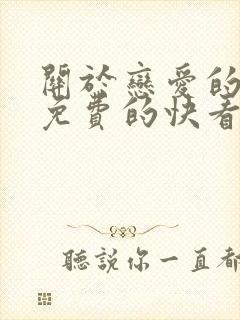 關於戀愛的
免費的快看
聽說你一直都